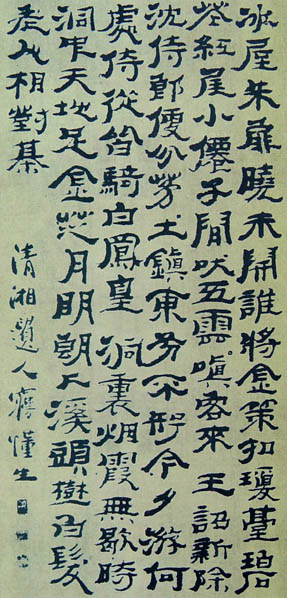 冰屋朱扉曉未開誰將金策扣瓊臺碧
花紅尾小僊子閒吠五雲嗔客來 王詔新除
沈侍郎便分茅土鎮東方不知今夕游何
處侍從皆騎白鳳皇 洞裏烟霞無歇時
洞中天地足金芝月明朗々溪頭樹白髮
老人相對棊
清湘遺人 懂生